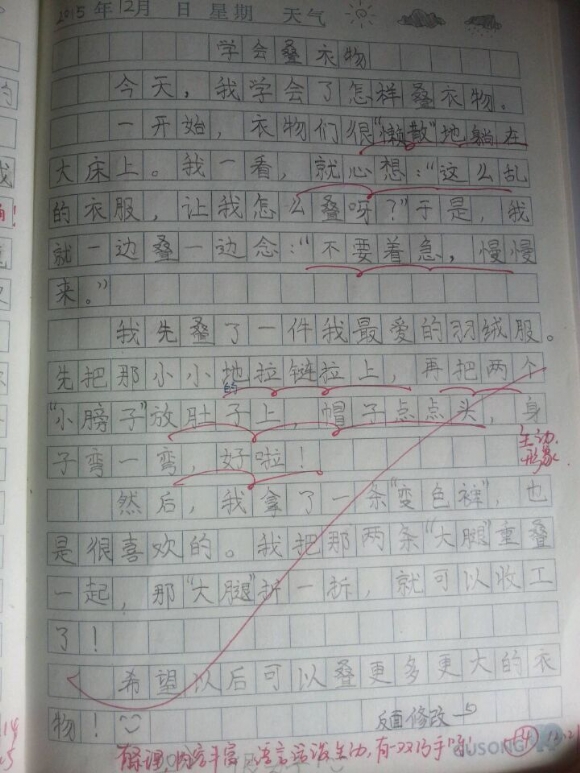 2015年12月 日 星期 天气
学会叠衣物
今天，我学会了怎样叠衣物。
一开始，衣物们很“懒散”地躺在
大床上。我一看，就心想：“这么乱
的衣服，让我怎么叠呀？”于是，我
就一边叠一边念：“不要着急，慢慢
来。”
我先叠了一件我最爱的羽绒服。
先把那小小地拉链拉上，再把两个
的
“小膀子”放肚子上，帽子点点头，身
子弯一弯，好啦！
生动
形象
然后，我拿了一条“变色裤”，也
是很喜欢的。我把那两条“大腿”重叠
一起，那“大腿”折一折，就可以收工
了！
希望以后可以叠更多更大的衣
物！
反面修改
内容丰富 语言活泼生动，有一双巧手